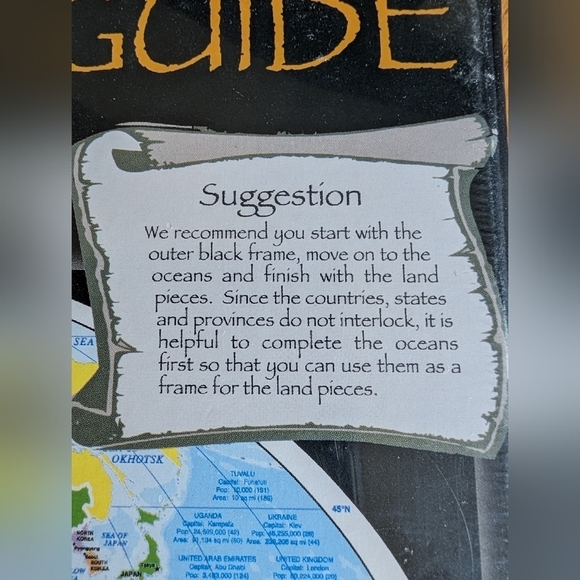 GUIDE
Suggestion
We recommend you start with the
outer black frame, move on to the
oceans and finish with the land
pieces. Since the countries, states
and provinces do not interlock, it is
helpful to complete the oceans
first so that you can use them as a
frame for the land pieces.
SEA
OKHOTSK
TUVALU
Capital: Funafuti
Pop: 10,000 (191)
Area: 10 sq mi (189)
45°N
UGANDA
Capital: Kampala
UKRAINE
Capital: Kiev
NORTH
KOREA
SOUTH
KOREA
SEA OF
JAPAN
JAPAN
Tokyo
UNITED ARAB EMIRATES
Capital: Abu Dhabi
UNITED KINGDOM
Capital: London